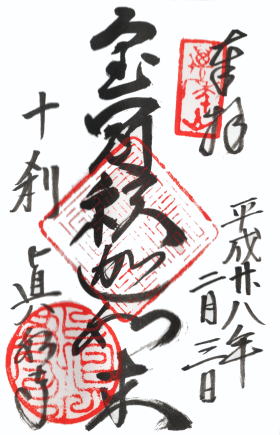 奉拝
平成廿八年
二月三日
宝冠釈迦如来
十刹
眞如寺